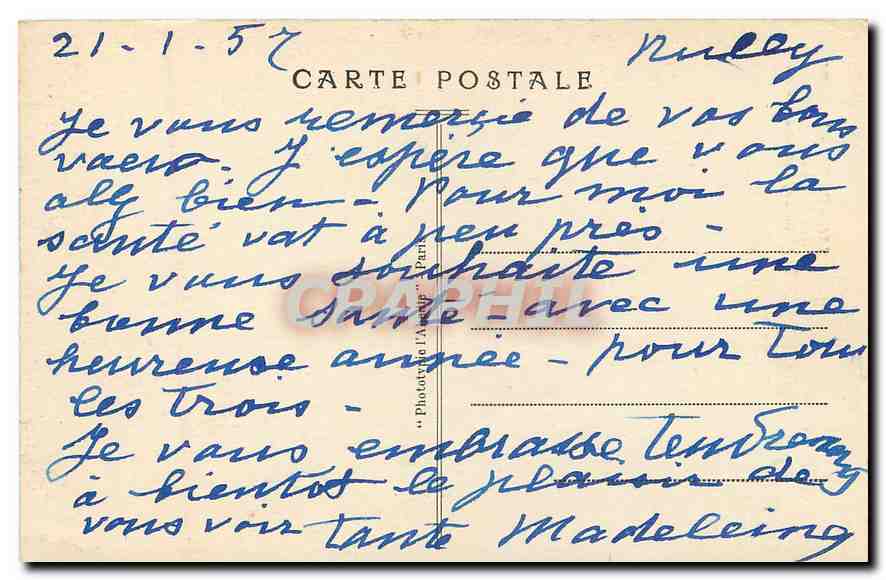 21-1-57 Nully
CARTE POSTALE
Je vous remerçie de vos bons
vaeux. J'espère que vous
allez bien - Pour moi la
santé vat à peu près -
Je vous souhaite une
bonne santé - avec une
heureuse année - pour tous
les trois -
Je vous embrasse, tendrement
à bientot le plaisir de
vous voir tante Madeleine
"Phototypie l'Abeille" Paris
CPAPHIL